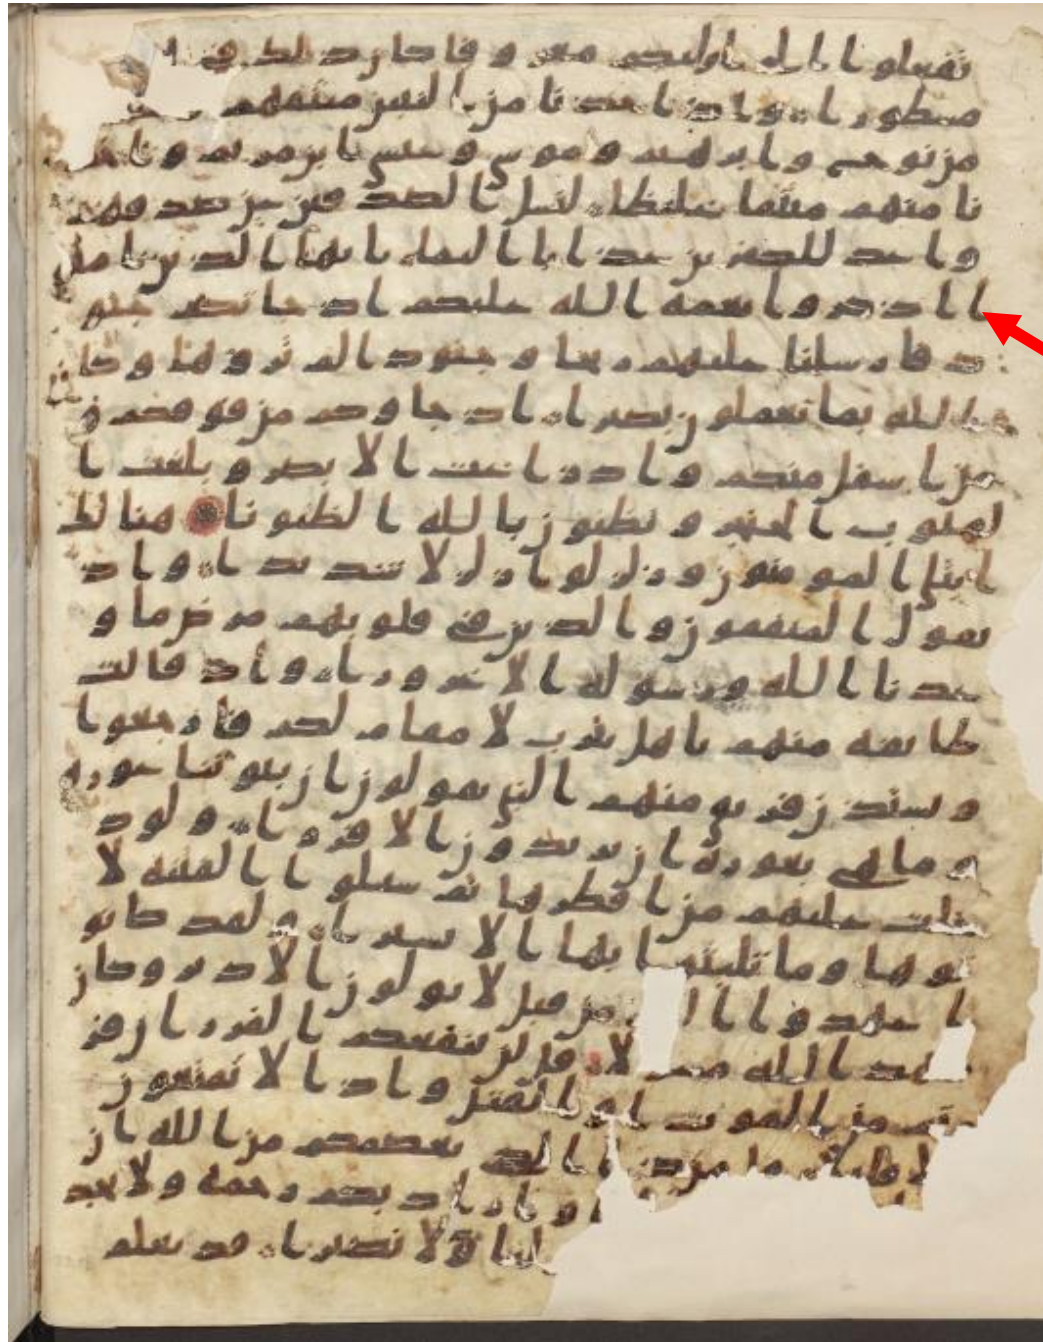 تفعلوا الى اوليكم معروفا كان ذلك في ا
مسطورا واذ اخذنا من النبين ميثقهم
من نوح وابرهيم وموسى وعيسى ابن مريم واخذ
نا منهم ميثقا غليظا ليسل الصدقين عن صدقهم
واعد للكفرين عذابا اليما يايها الذين امنو
ا اذكروا نعمة الله عليكم اذ جاتكم جنو
د فارسلنا عليهم ريحا وجنودا لم تروها وكا
ن الله بما تعملون بصيرا اذ جاوكم من فوقكم و
من اسفل منكم واذ زاغت الابصر وبلغت ا
لقلوب الحنجر وتظنون بالله الظنونا هنالك
ابتلي المومنون وزلزلوا زلزلا شديدا واذ
يقول المنفقون والذين في قلوبهم مرض ما و
عدنا الله ورسوله الا غرورا واذ قالت
طايفة منهم ياهل يثرب لا مقام لكم فارجعوا
ويستذن فريق منهم النبي يقولون ان بيوتنا عورة
وما هي بعورة ان يريدون الا فرارا ولو د
خلت عليهم من اقطرها ثم سيلوا الفتنة لا
توها وما تلبثوا بها الا يسيرا ولقد كانو
ا عهدوا ا من قبل لا يولون الادبر وكان
عهد الله مسولا قل لن ينفعكم الفرر ان فر
رتم من الموت او القتل واذا لا تمتعون
الا قليلا قل من ذا الذي يعصمكم من الله ان
ا او اراد بكم رحمة ولا يجد
وليا ولا نصيرا قد يعلم